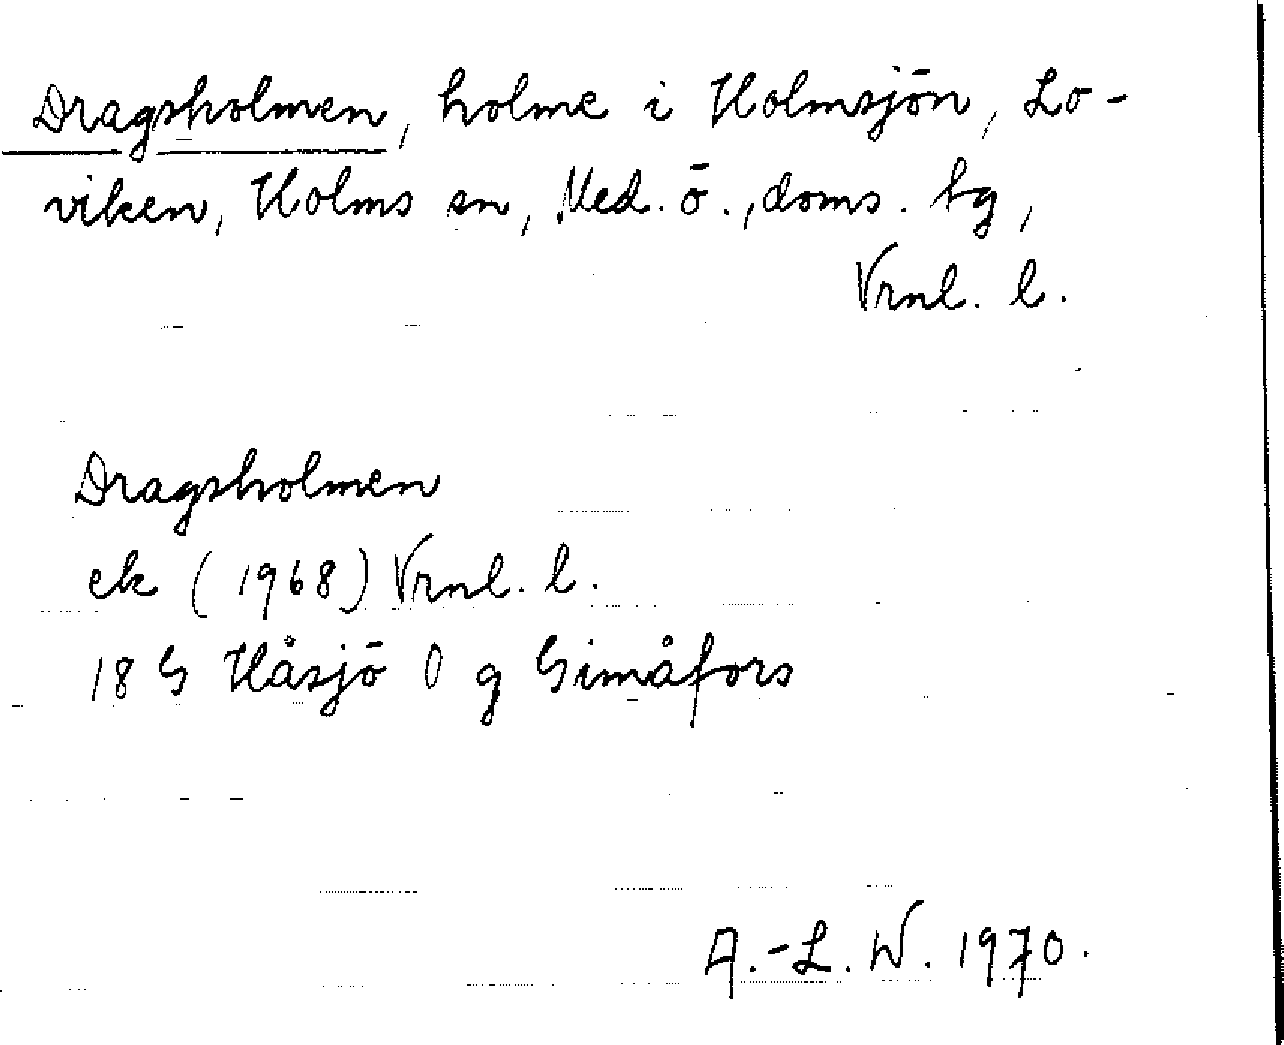 Dragsholmen, holme i Holmsjön, Lo-
viken, Holms sn, Med. ö., doms. tg,
Vrnl. l.
Dragsholmen
ek (1968) Vrnl. l.
18 G Håsjö O g Gimåfors
A.-L. W. 1970.